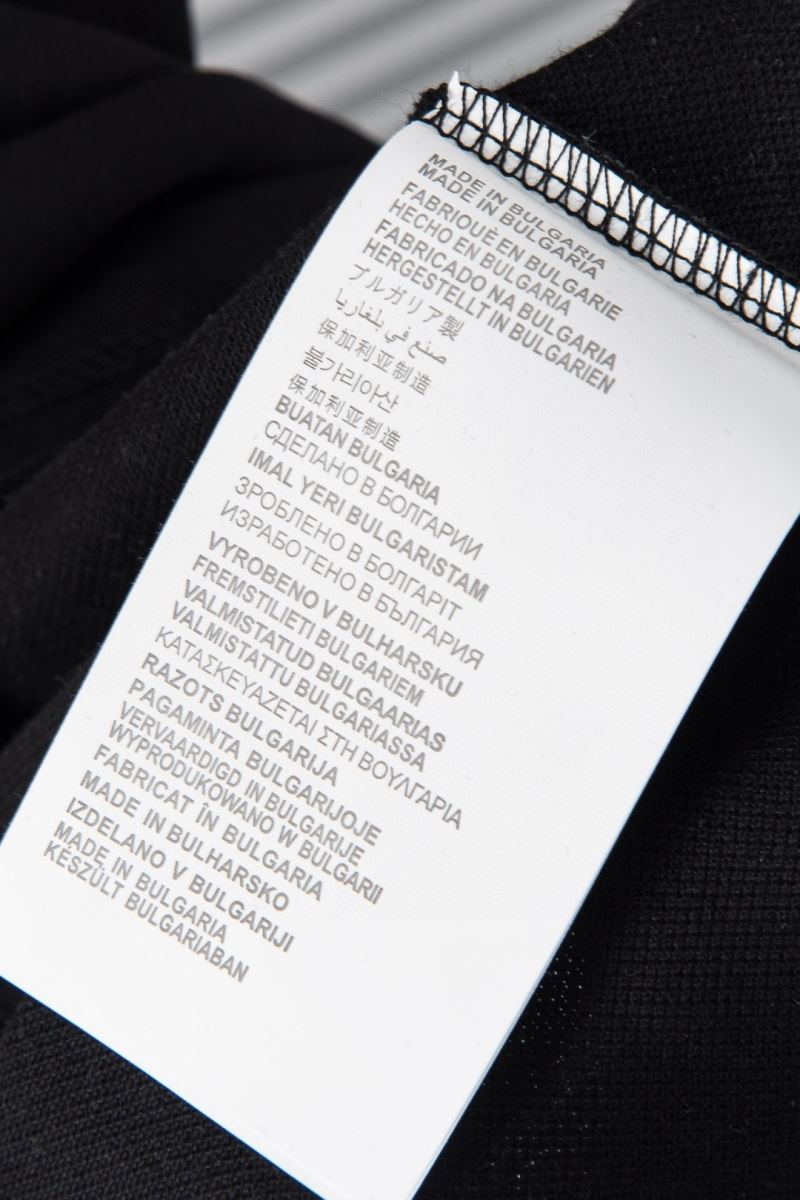 MADE IN BULGARIA
MADE IN BULGARIA
FABRIQUÈ EN BULGARIE
HECHO EN BULGARIA
FABRICADO NA BULGARIA
HERGESTELLT IN BULGARIEN
ブルガリア製
صنع في بلغاريا
保加利亚制造
불가리아산
保加利亚制造
BUATAN BULGARIA
СДЕЛАНО В БОЛГАРИИ
IMAL YERI BULGARISTAM
ЗРОБЛЕНО В БОЛГАРІТ
ИЗРАБОТЕНО В БЪЛГАРИЯ
VYROBENO V BULHARSKU
FREMSTILIETI BULGARIEM
VALMISTATUD BULGAARIAS
VALMISTATTU BULGARIASSA
ΚΑΤΑΣΚΕΥΑΖΕΤΑΙ ΣΤΗ ΒΟΥΛΓΑΡΙΑ
RAZOTS BULGARIJA
PAGAMINTA BULGARIJOJE
VERVAARDIGD IN BULGARIJE
WYPRODUKOWANO W BULGARII
FABRICAT ÎN BULGARIA
MADE IN BULHARSKO
IZDELANO V BULGARIJI
MADE IN BULGARIA
KÉSZÜLT BULGARIABAN